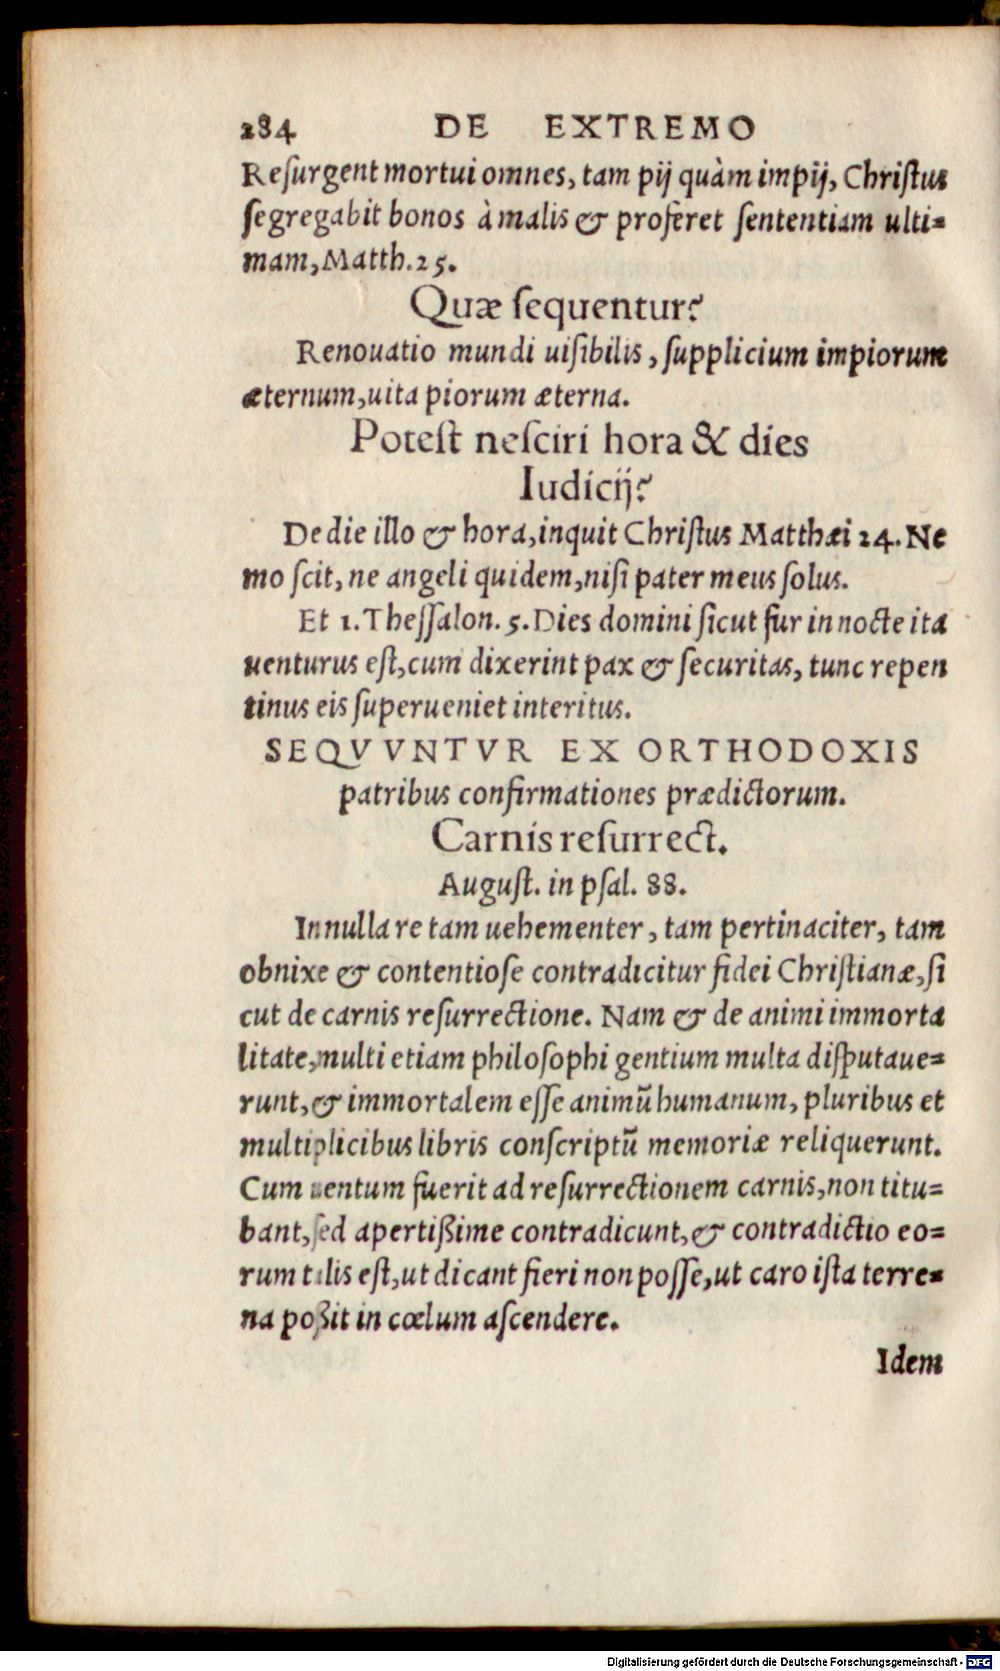 284 DE EXTREMO
Reſurgent mortui omnes, tam pij quàm impij, Chriſtus
ſegregabit bonos à malis & proferet ſententiam ulti=
mam, Matth. 25.
Quæ ſequentur?
Renouatio mundi uiſibilis, ſupplicium impiorum
æternum, uita piorum æterna.
Poteſt neſciri hora & dies
Iudicij?
De die illo & hora, inquit Chriſtus Matthæi 24. Ne
mo ſcit, ne angeli quidem, niſi pater meus ſolus.
Et 1. Theſſalon. 5. Dies domini ſicut fur in nocte ita
uenturus eſt, cum dixerint pax & ſecuritas, tunc repen
tinus eis ſuperueniet interitus.
SEQVVNTVR EX ORTHODOXIS
patribus confirmationes prædictorum.
Carnis reſurrect.
Auguſt. in pſal. 88.
In nulla re tam uehementer, tam pertinaciter, tam
obnixe & contentioſe contradicitur fidei Chriſtianæ, ſi
cut de carnis reſurrectione. Nam & de animi immorta
litate, multi etiam philoſophi gentium multa diſputaue=
runt, & immortalem eſſe animū humanum, pluribus et
multiplicibus libris conſcriptū memoriæ reliquerunt.
Cum uentum fuerit ad reſurrectionem carnis, non titu=
bant, ſed apertißime contradicunt, & contradictio eo=
rum talis eſt, ut dicant fieri non poſſe, ut caro iſta terre=
na poßit in cœlum aſcendere.
Idem
Digitalisierung gefördert durch die Deutsche Forschungsgemeinschaft - DFG